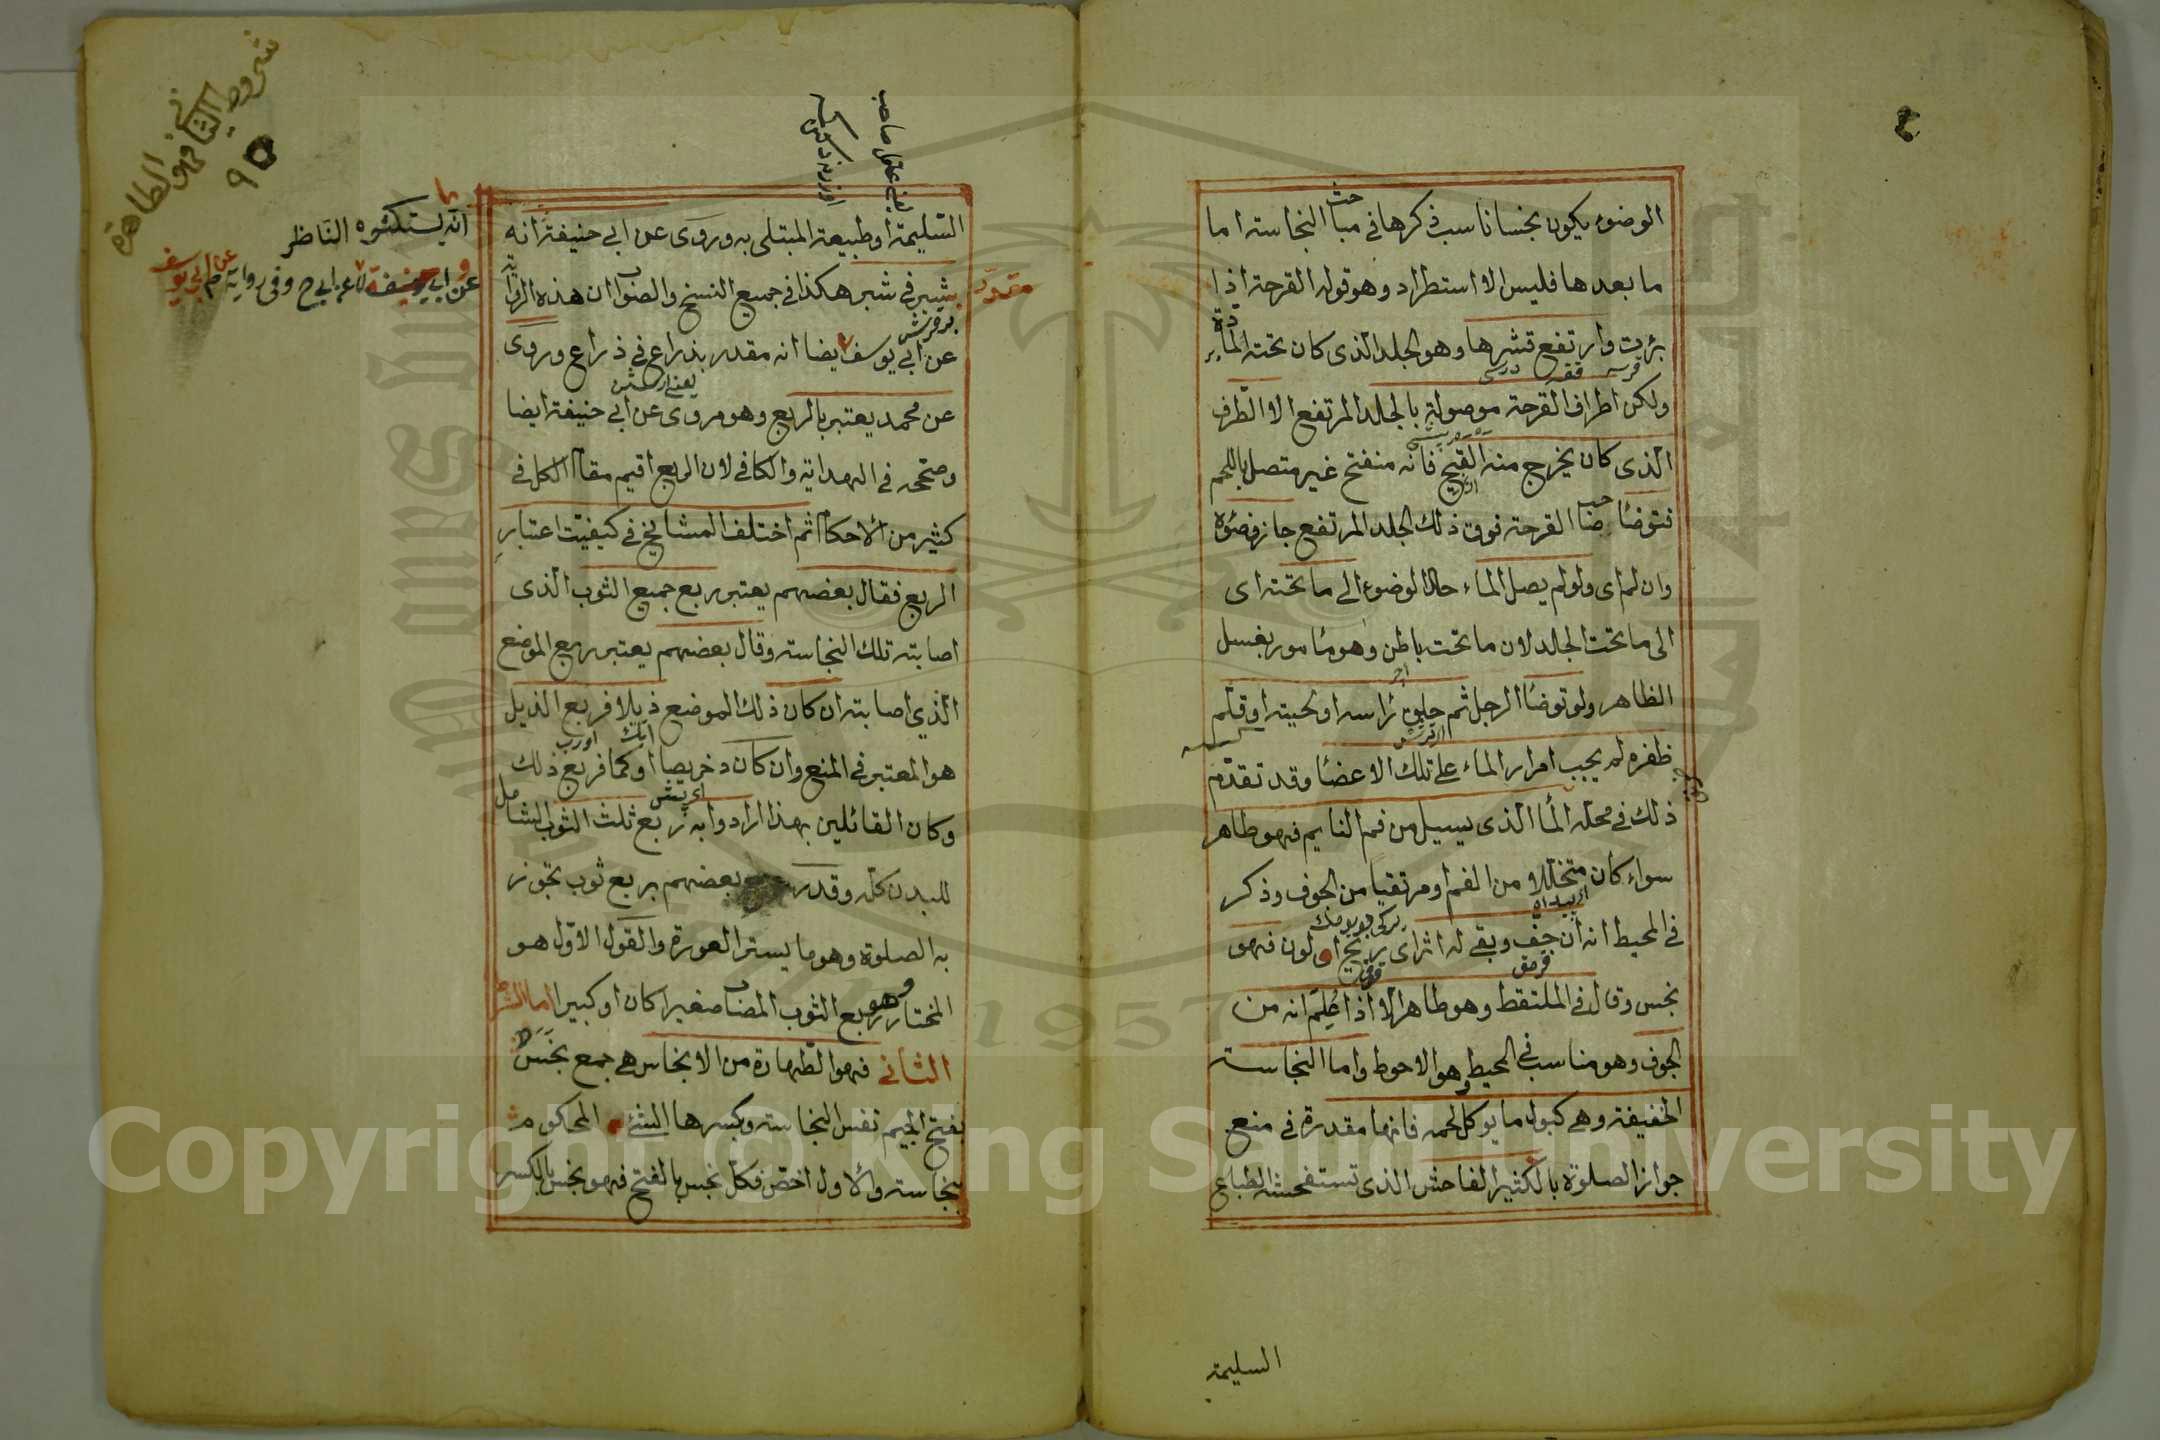 ٤
الوضوء يكون نجسا ناسب ذكرها في مباحث النجاسة اما
ما بعدها فليس الا استطراد وهو قوله القرحة اذا
برئت وارتفع قشرها وهو الجلد الذى كان تحته المادة
ولكن اطراف القرحة موصولة بالجلد المرتفع الا الطرف
الذى كان يخرج منه القيح فانه منفتح غير متصل باللحم
فتوضأ صاحب القرحة فوق ذلك الجلد المرتفع جاز وضوءه
وان لم اى ولو لم يصل الماء حال الوضوء الى ما تحته اى
الى ما تحت الجلد لان ما تحت باطن وهو مأمور بغسل
الظاهر ولو توضأ الرجل ثم حلق رأسه او لحيته او قلم
ظفره لم يجب امرار الماء على تلك الاعضا وقد تقدم
ذلك في محله المأ الذى يسيل من فم النايم فهو طاهر
سواء كان متحللا من الفم او مرتقيا من الجوف وذكر
في المحيط انه ان جف وبقى له اثر اى ريح او لون فهو
نجس وقال في الملتقط وهو طاهر الا اذا علم انه من
الجوف وهو مناسب في المحيط وهو الاحوط واما النجاسة
الخفيفة وهى كبول ما يوكل لحمه فانها مقدرة في منع
جواز الصلوة بالكثير الفاحش الذى تستفحشه الطباع
السليمة
السليمة او طبيعة المبتلى به وروى عن ابي حنيفة انه
مقدر
بشبر في شبر هكذا في جميع النسخ والصواب ان هذه الرواية
عن ابي يوسف ايضا انه مقدر بذراع في ذراع وروى
عن محمد يعتبر بالربع وهو مروى عن ابي حنيفة ايضا
وصححه في الهداية والكافي لان الربع اقيم مقام الكل في
كثير من الاحكام ثم اختلف المشايخ في كيفيت اعتبار
الربع فقال بعضهم يعتبر ربع جميع الثوب الذى
اصابته تلك النجاسة وقال بعضهم يعتبر ربع الموضع
الذي اصابته ان كان ذلك الموضع ذيلا فربع الذيل
هو المعتبر في المنع وان كان دخريصا او كما فربع ذلك
وكان القائلين بهذا ارادوا به ربع ثلث الثوب الشامل
للبدن كله وقدر بعضهم بربع ثوب تجوز
به الصلوة وهو ما يستر العورة والقول الاول هو
المختار وهو ربع الثوب المصاب صغيرا كان او كبيرا اما الشرط
الثانى فهو الطهارة من الانجاس هى جمع نجس
بفتح الجيم نفس النجاسة وبكسرها الشئ المحكوم
بنجاسته والاول اخص فكل نجس بالفتح فهو نجس بالكسر
انه يستكثره الناظر
شروط الثاني في الطاهرة
Copyright © King Saud University
1957